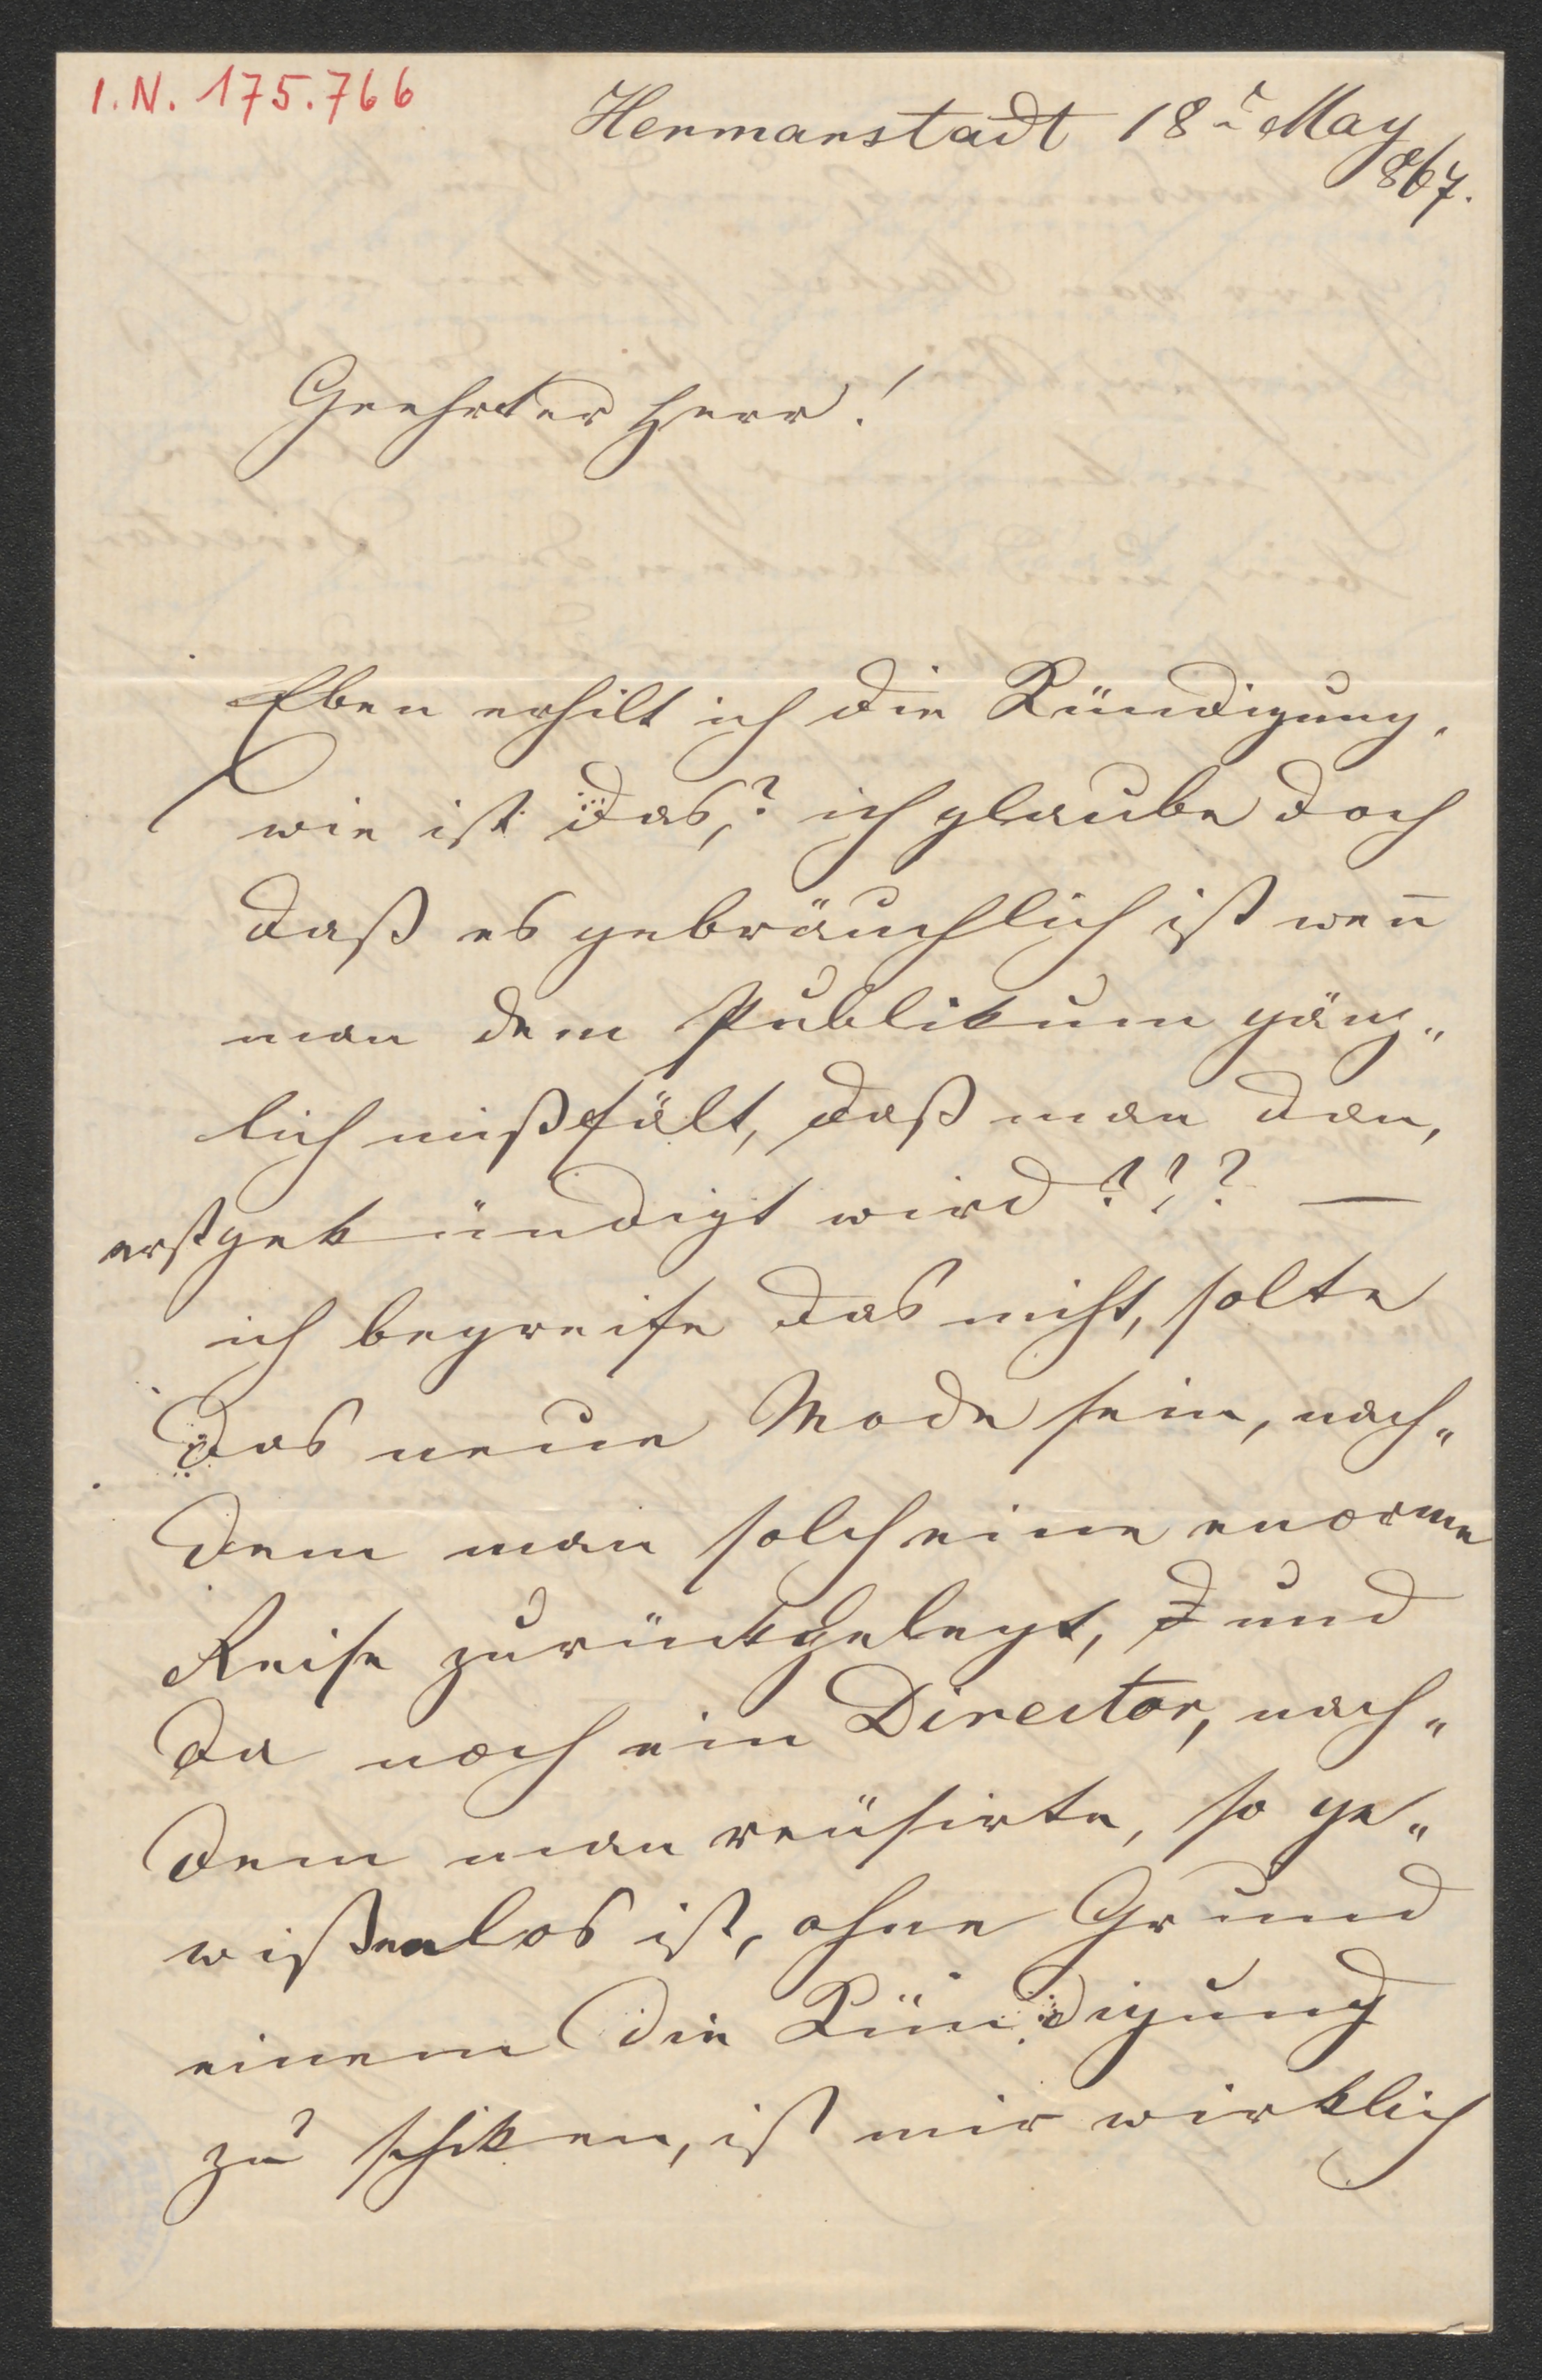 I.N. 175.766
Hermanstadt 18t May
867.
Geehrter Herr!
Eben erhilt ich die Kündigung,
wie ist das,? ich glaube doch
daß es gebräuchlich ist wen̄
man dem Publikum gänz„
lich mißfält, daß man dan,
erst gekündigt wird??? —
ich begreife das nicht, solte
das neue Mode sein, nach„
dem man solch eine enorme
Reise zurückgelegt, und
da noch ein Director, nach„
dem man reüsirte, so ge„
wißenlos ist, ohne Grund
einem die Kündigung
zu schiken, ist mir wirklich